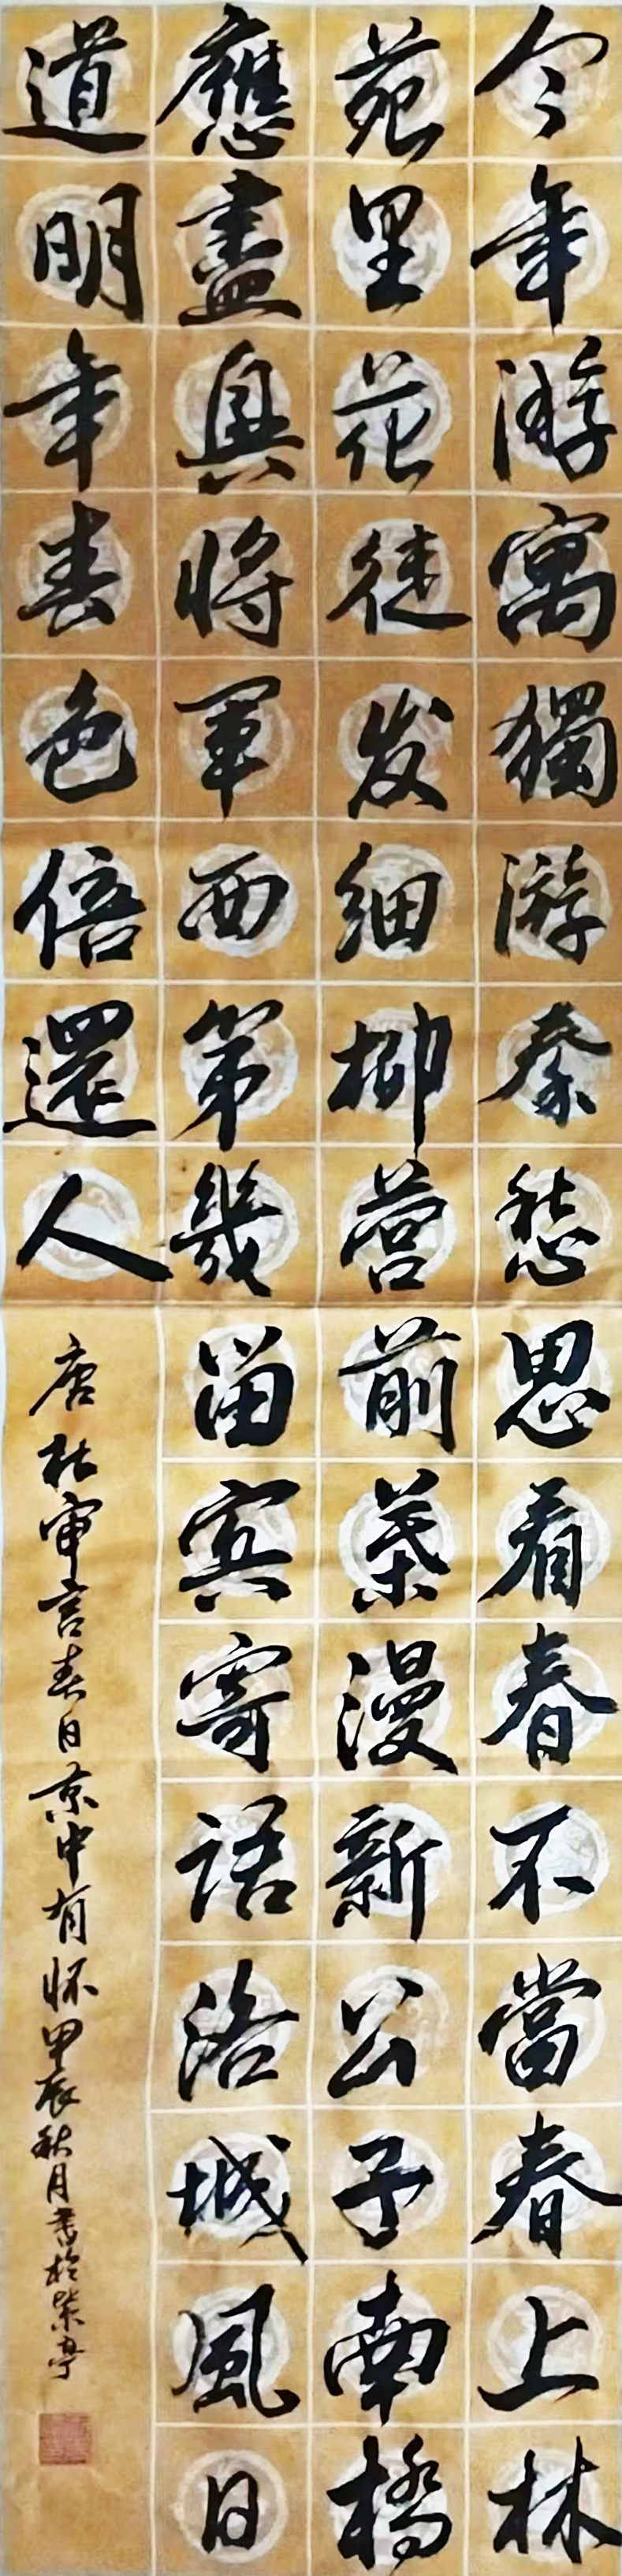 今年游寓獨游秦愁思看春不當春上林
苑里花徒发细柳营前葉漫新公子南橋
應盡興將軍西第幾留賓寄语洛城風日
道明年春色倍還人
唐杜审言春日京中有怀甲辰秋月書於亭